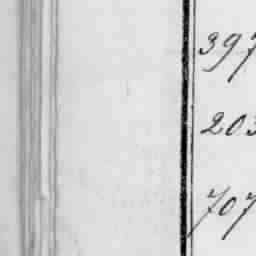 397
203
707